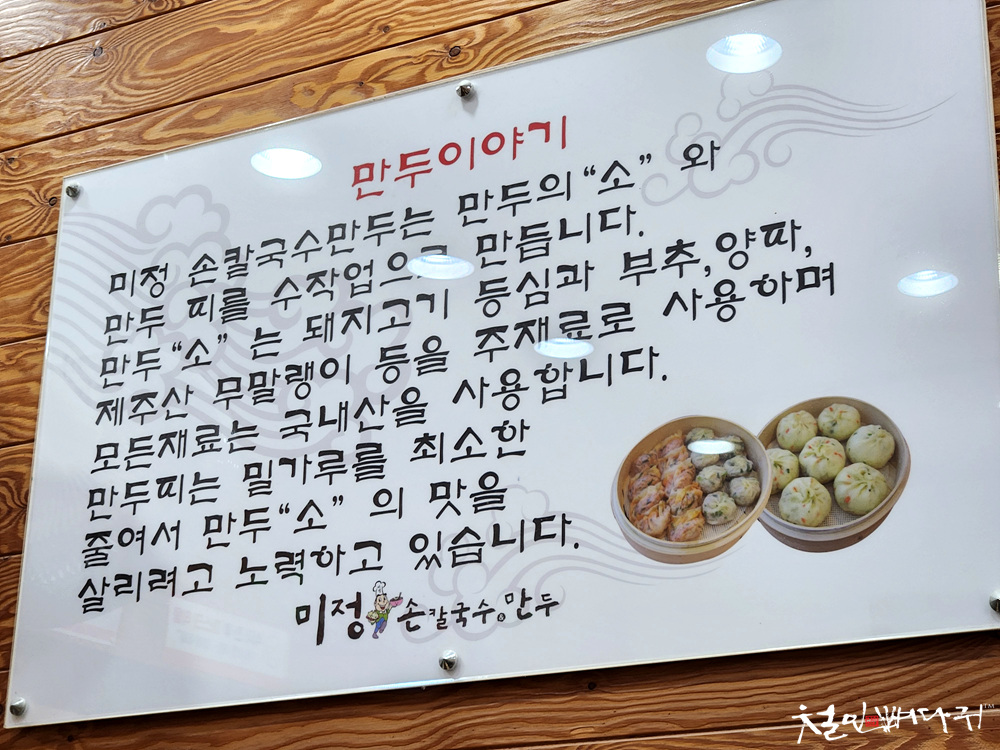 만두이야기
미정 손칼국수만두는 만두의 “소” 와
만두 피를 수작업으로 만듭니다.
만두 “소” 는 돼지고기 등심과 부추, 양파,
제주산 무말랭이 등을 주재료로 사용하며
모든재료는 국내산을 사용합니다.
만두피는 밀가루를 최소한
줄여서 만두“소” 의 맛을
살리려고 노력하고 있습니다.
미정 손칼국수&만두
철인뼈다귀™